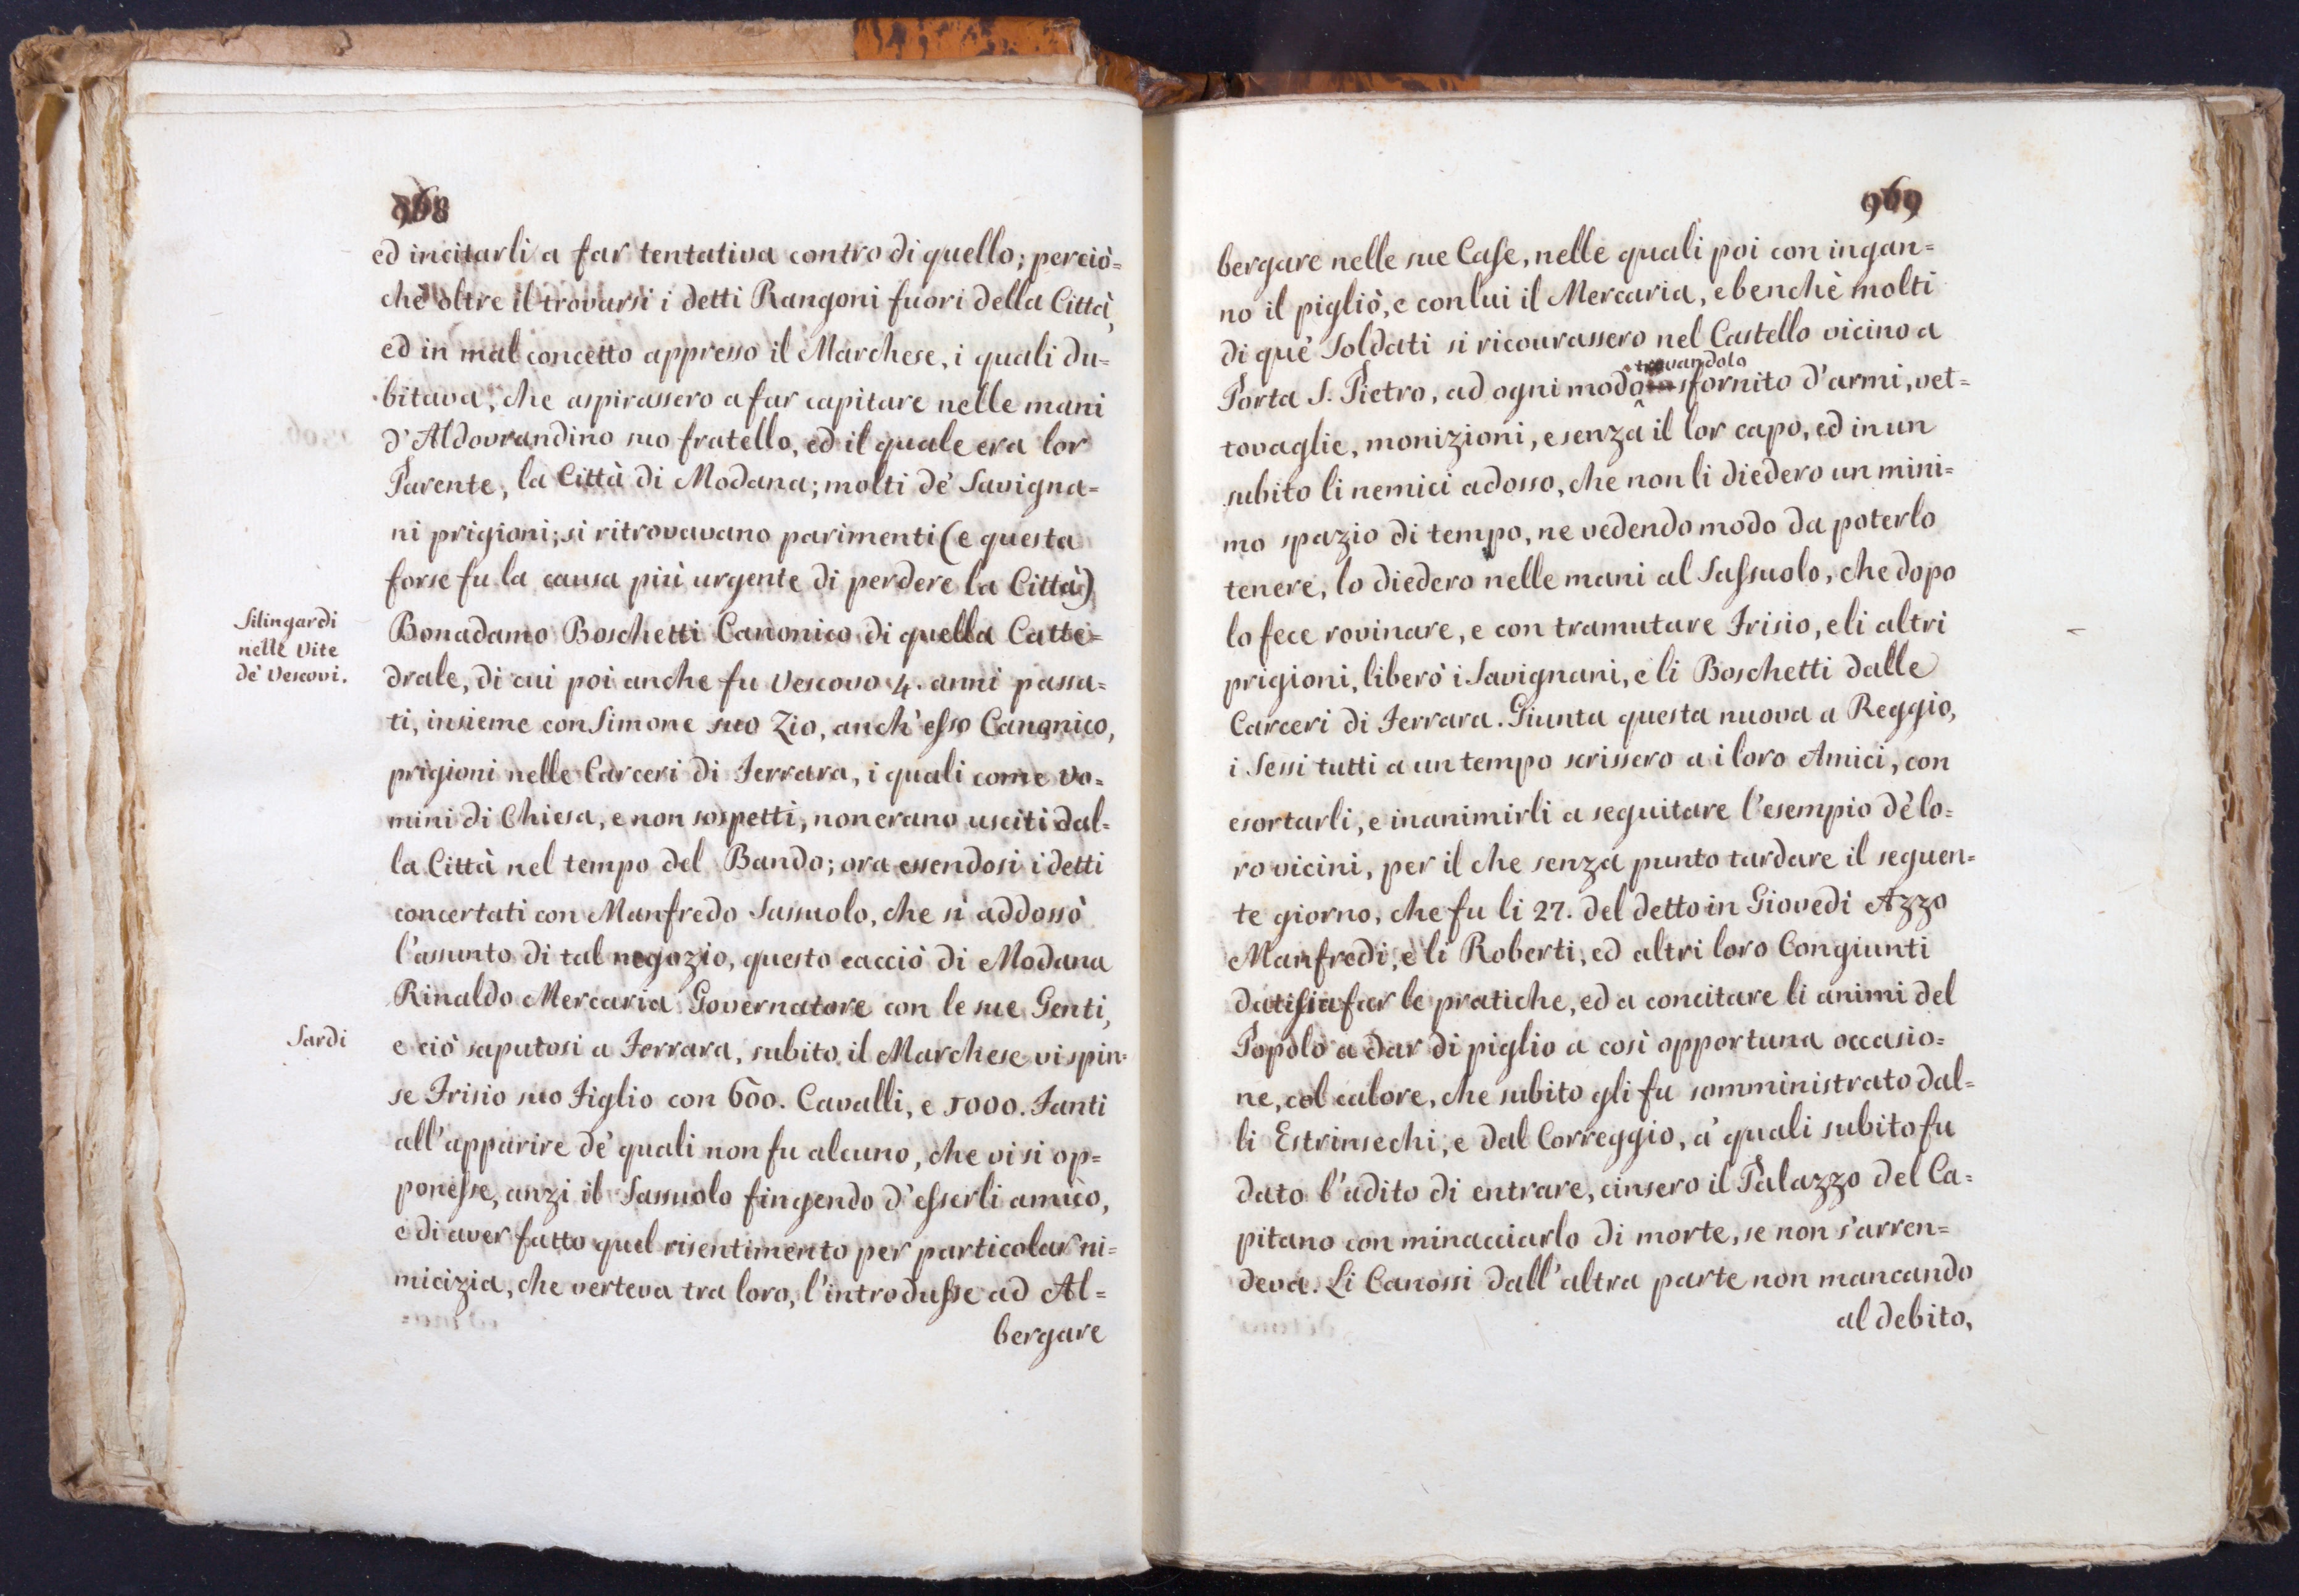 968
ed incitarli a far tentativa contro di quello; perciò=
chè oltre il trovarsi i detti Rangoni fuori della Città,
ed in mal concetto appresso il Marchese, i quali du=
bitava, che aspirassero a far capitare nelle mani
d'Aldovrandino suo fratello, ed il quale era lor
Parente, la Città di Modana; molti de' Savigna=
ni prigioni; si ritrovavano parimenti (e questa
forse fu la causa più urgente di perdere la Città)
Silingardi
nelle Vite
de' Vescovi.
Bonadamo Boschetti Canonico di quella Catte=
drale, di cui poi anche fu Vescovo 4. anni passa=
ti, insieme con Simone suo Zio, anch'esso Canonico,
prigioni nelle Carceri di Ferrara, i quali come Vo=
mini di Chiesa, e non sospetti, non erano usciti dal=
la Città nel tempo del Bando; ora essendosi i detti
concertati con Manfredo Sassuolo, che si addossò
l'assunto di tal negozio, questo cacciò di Modana
Rinaldo Mercaria Governatore con le sue Genti,
Sardi
e ciò saputosi a Ferrara, subito il Marchese vi spin=
se Frisio suo Figlio con 600. Cavalli, e 1000. Fanti
all'apparire de' quali non fu alcuno, che vi si op=
ponesse, anzi il Sassuolo fingendo d'esserli amico,
e di aver fatto quel risentimento per particolar ni=
micizia, che verteva tra loro, l'introdusse ad Al=
bergare
969
bergare nelle sue Case, nelle quali poi con ingan=
no il pigliò, e con lui il Mercaria, e benchè molti
di que' Soldati si ricourassero nel Castello vicino a
trovandolo
Porta S. Pietro, ad ogni modo sfornito d'armi, vet=
tovaglie, monizioni, e senza il lor capo, ed in un
subito li nemici adosso, che non li diedero un mini=
mo spazio di tempo, ne vedendo modo da poterlo
tenere, lo diedero nelle mani al Sassuolo, che dopo
lo fece rovinare, e con tramutare Frisio, e li altri
prigioni, liberò i Savignani, e li Boschetti dalle
Carceri di Ferrara. Giunta questa nuova a Reggio,
i Sessi tutti a un tempo scrissero a i loro Amici, con
esortarli, e inanimirli a seguitare l'esempio de' lo=
ro vicini, per il che senza punto tardare il seguen=
te giorno, che fu li 27. del detto in Giovedì Azzo
Manfredi, e li Roberti, ed altri loro Congiunti
datisi a far le pratiche, ed a concitare li animi del
Popolo a dar di piglio a così opportuna occasio=
ne, col calore, che subito gli fu somministrato dal=
li Estrinsechi, e dal Correggio, a' quali subito fu
dato l'adito di entrare, cinsero il Palazzo del Ca=
pitano con minacciarlo di morte, se non s'arren=
deva. Li Canossi dall'altra parte non mancando
al debito,